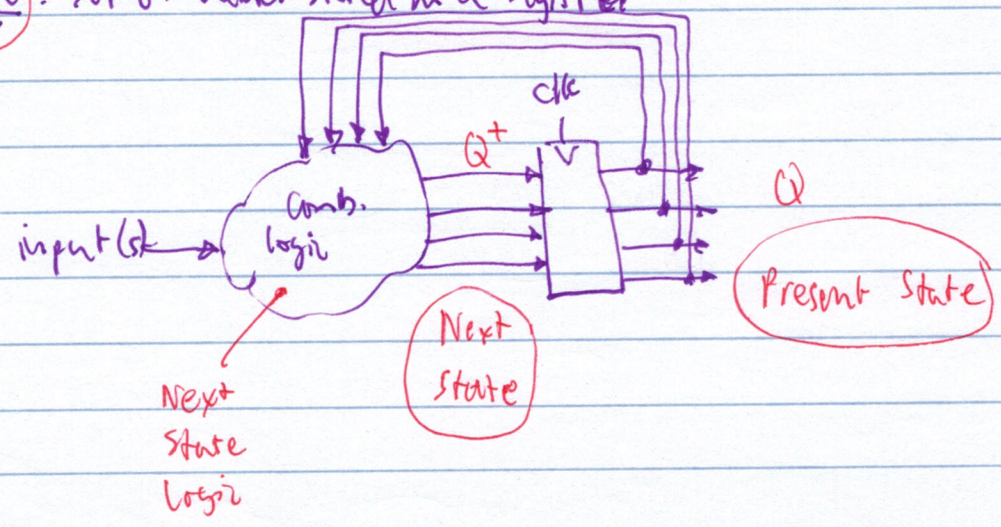 clk
Q+
Q
Comb.
logic
input(s)
Present State
Next
State
Next
State
Logic